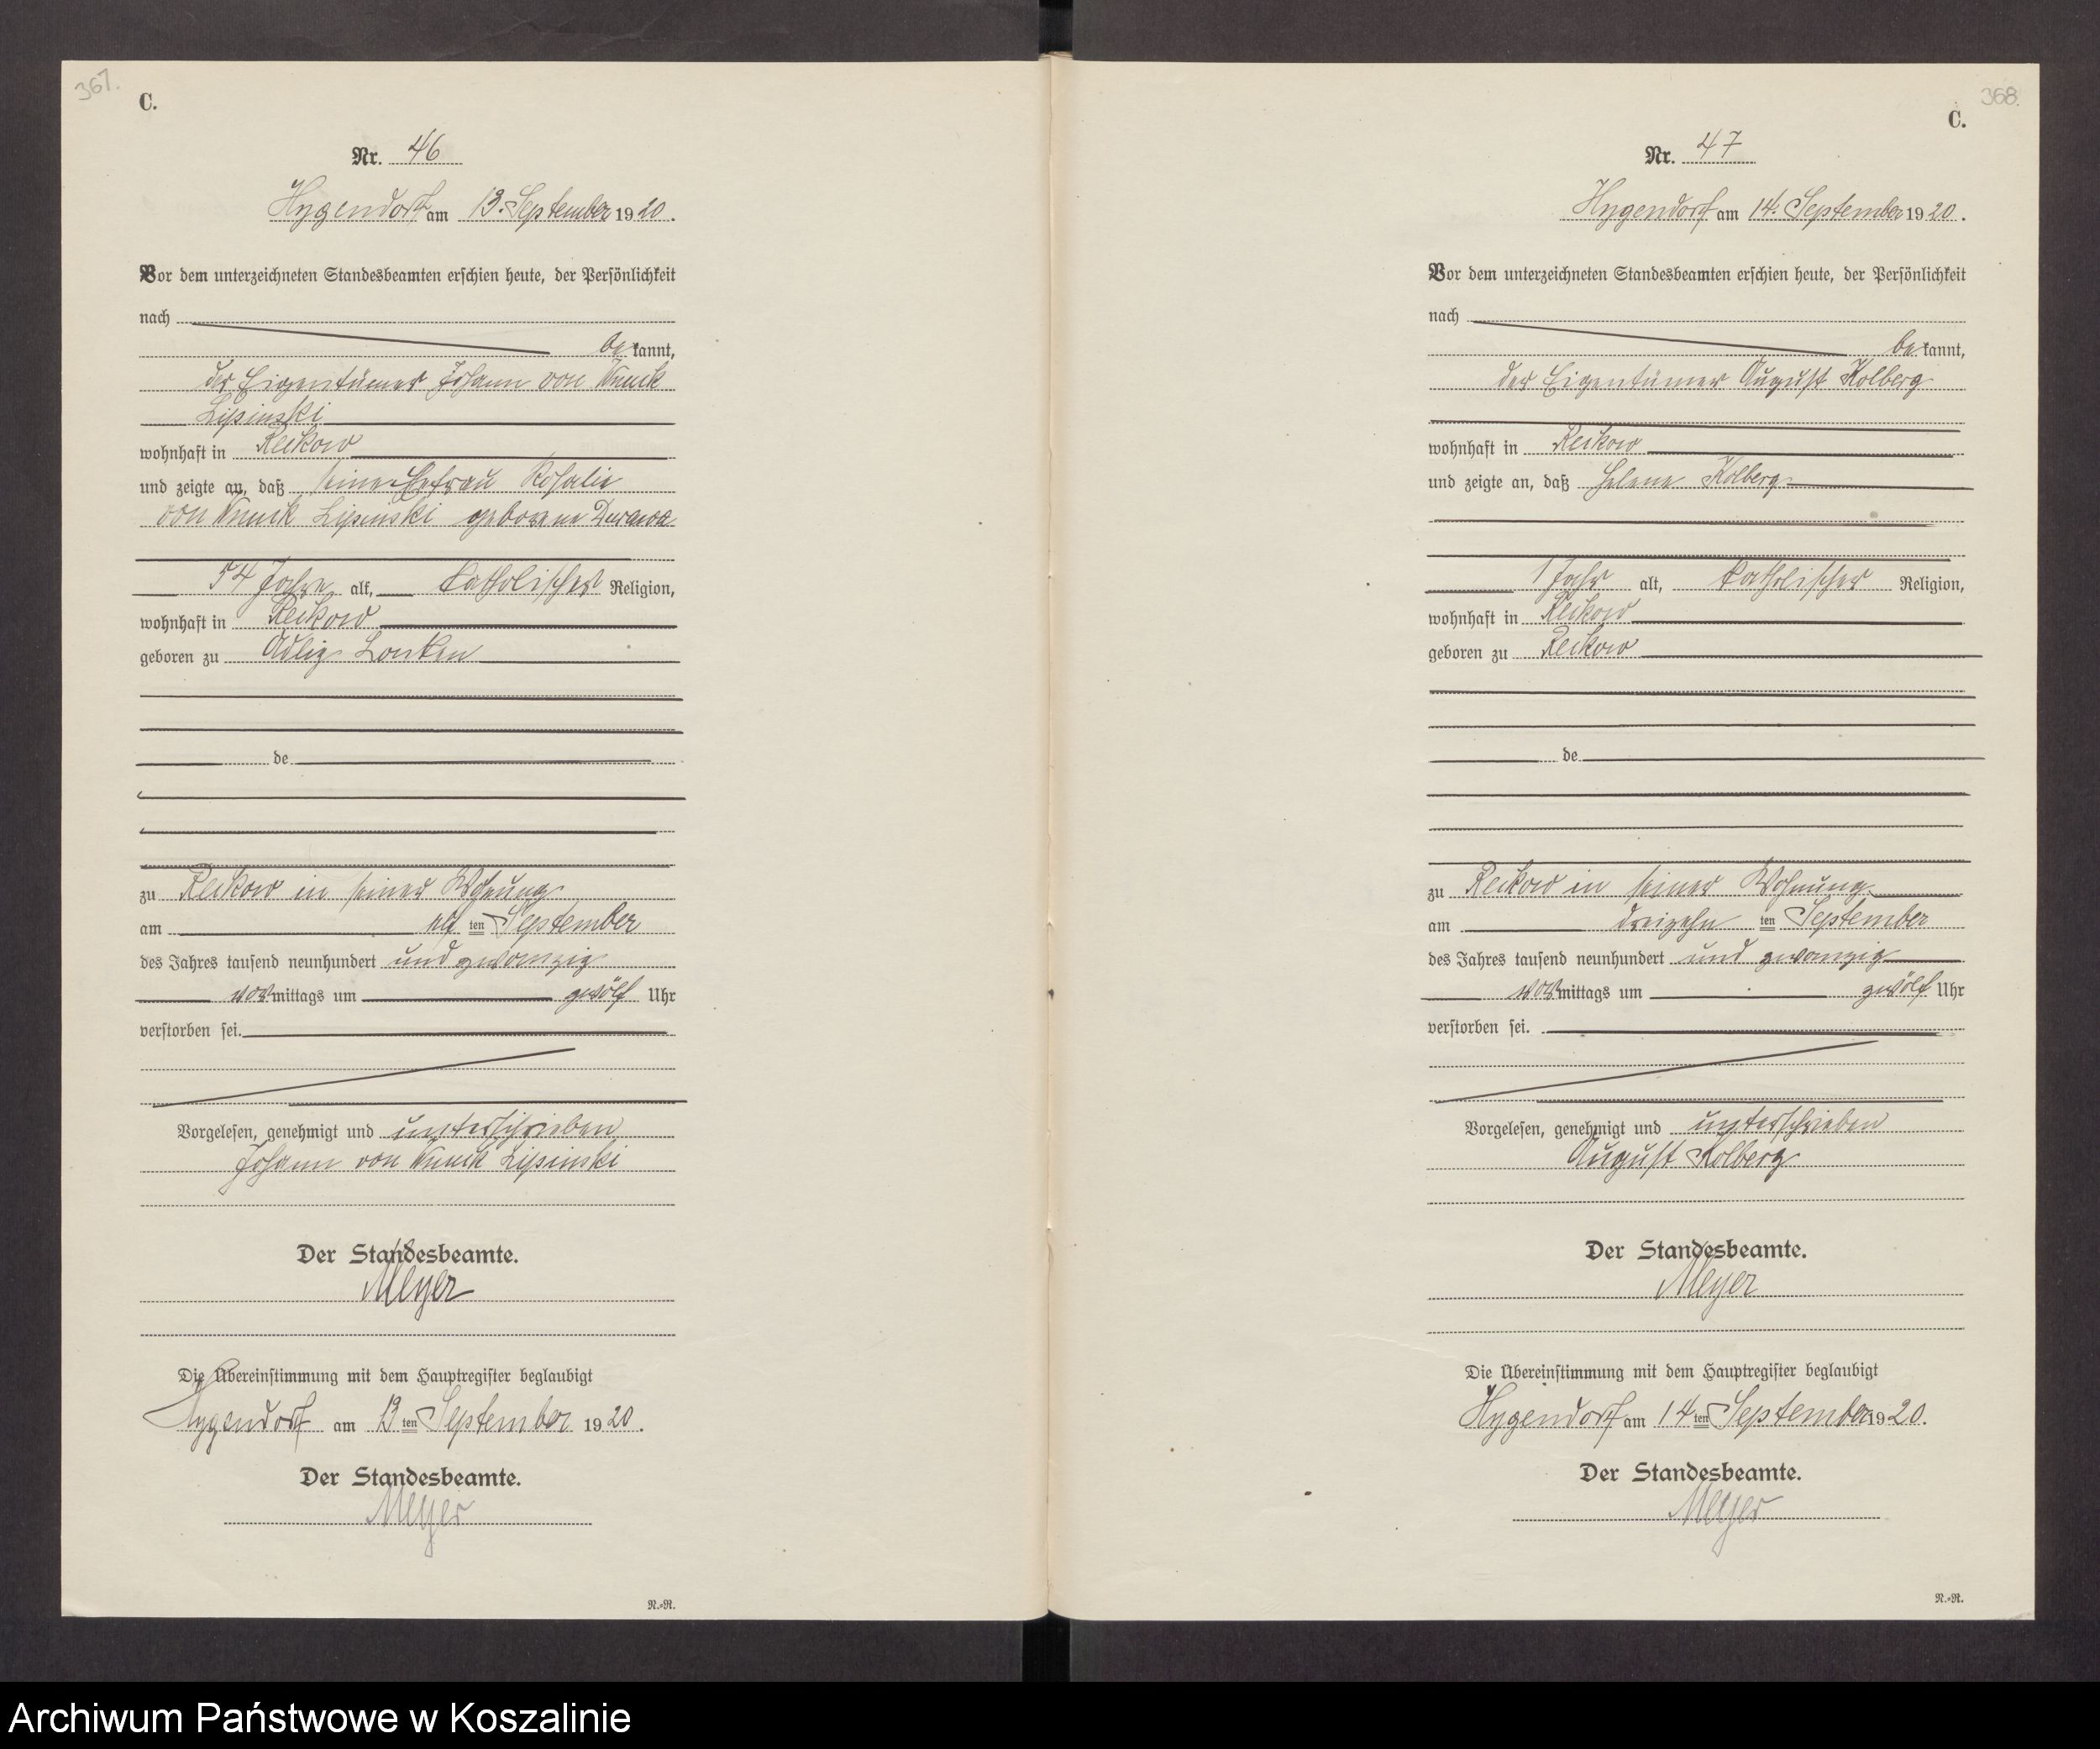 367.
C.
Nr. 46
Hygendorf am 13. September 1920.
Vor dem unterzeichneten Standesbeamten erschien heute, der Persönlichkeit
nach
bekannt,
der Eigentümer Johann von Wnuck
Lipinski
wohnhaft in Reckow
und zeigte an, daß seine Ehefrau Rosalie
von Wnuck Lipinski geborene
54 Jahre alt, katholischer Religion,
wohnhaft in Reckow
geboren zu Adlig Lonken
de
zu Reckow in seiner Wohnung
am elf ten September
des Jahres tausend neunhundert und zwanzig
vormittags um zwölf Uhr
verstorben sei.
Vorgelesen, genehmigt und unterschrieben
Johann von Wnuck Lipinski
Der Standesbeamte.
Meyer
Die Übereinstimmung mit dem Hauptregister beglaubigt
Hygendorf am 13 ten September 1920.
Der Standesbeamte.
Meyer
N.-R.
368.
C.
Nr. 47
Hygendorf am 14. September 1920.
Vor dem unterzeichneten Standesbeamten erschien heute, der Persönlichkeit
nach
bekannt,
der Eigentümer August Kolberg
wohnhaft in Reckow
und zeigte an, daß Helene Kolberg
1 Jahr alt, katholischer Religion,
wohnhaft in Reckow
geboren zu Reckow
de
zu Reckow in seiner Wohnung
am dreizehn ten September
des Jahres tausend neunhundert und zwanzig
vormittags um zwölf Uhr
verstorben sei.
Vorgelesen, genehmigt und unterschrieben
August Kolberg
Der Standesbeamte.
Meyer
Die Übereinstimmung mit dem Hauptregister beglaubigt
Hygendorf am 14 ten September 1920.
Der Standesbeamte.
Meyer
N.-R.
Archiwum Państwowe w Koszalinie